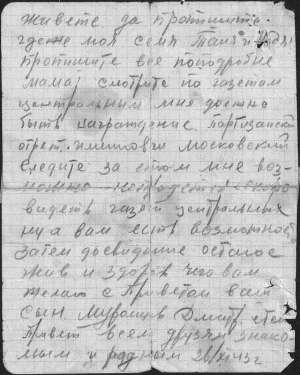 живете за пропишите.
где же моя семя Таня и
пропишите все поподробне
мама смотрите по газетам
центральным мне должно
быть награждение партизанск
отрет. Московский
следите за етом мне воз-
можно скоро
видеть газет центральных
ну а вам есть возможнос
затем досвидание остаюс
жив и здоров чего вам
желаю с Приветом ваш
сын Дмитр
Привет всем друзям знако
мым и родным 26/XI 43 г